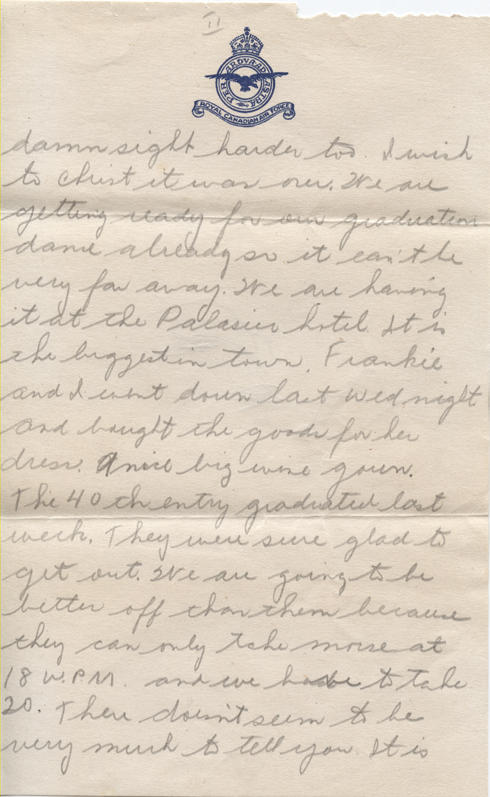 II
PER ARDUA AD ASTRA
ROYAL CANADIAN AIR FORCE
damn sight harder too. I wish
to christ it was over. We are
getting ready for our graduation
dance already so it can't be
very far away. We are having
it at the Palasier hotel. It is
the biggest in town. Frankie
and I went down last Wed night
and bought the goods for her
dress. A nice big wine gown.
The 40th entry graduated last
week. They were sure glad to
get out. We are going to be
better off than them because
they can only take morse at
18 W.P.M. and we have to take
20. There doesn't seem to be
very much to tell you. It is